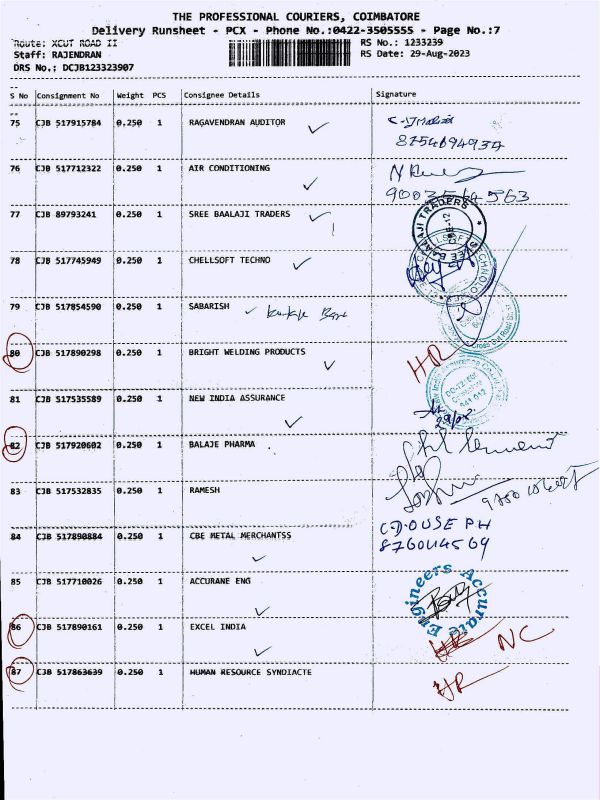 THE PROFESSIONAL COURIERS, COIMBATORE
Delivery Runsheet - PCX - Phone No.:0422-3505555 - Page No.:7
Route: XCUT ROAD II RS No.: 1233239
Staff: RAJENDRAN RS Date: 29-Aug-2023
DRS No.: DCJB123323907
S No Consignment No Weight PCS Consignee Details Signature
75 CJB 517915784 0.250 1 RAGAVENDRAN AUDITOR
8754694934
76 CJB 517712322 0.250 1 AIR CONDITIONING
9003564563
77 CJB 89793241 0.250 1 SREE BAALAJI TRADERS
SREE BAALAJI TRADERS
78 CJB 517745949 0.250 1 CHELLSOFT TECHNO
79 CJB 517854590 0.250 1 SABARISH
80 CJB 517890298 0.250 1 BRIGHT WELDING PRODUCTS HR
81 CJB 517535589 0.250 1 NEW INDIA ASSURANCE
82 CJB 517920602 0.250 1 BALAJE PHARMA
83 CJB 517532835 0.250 1 RAMESH
84 CJB 517890884 0.250 1 CBE METAL MERCHANTSS
C.D.OUSEPH
8760114569
85 CJB 517710026 0.250 1 ACCURANE ENG
Engineers Accurate
86 CJB 517890161 0.250 1 EXCEL INDIA HR NC
87 CJB 517863639 0.250 1 HUMAN RESOURCE SYNDIACTE HR